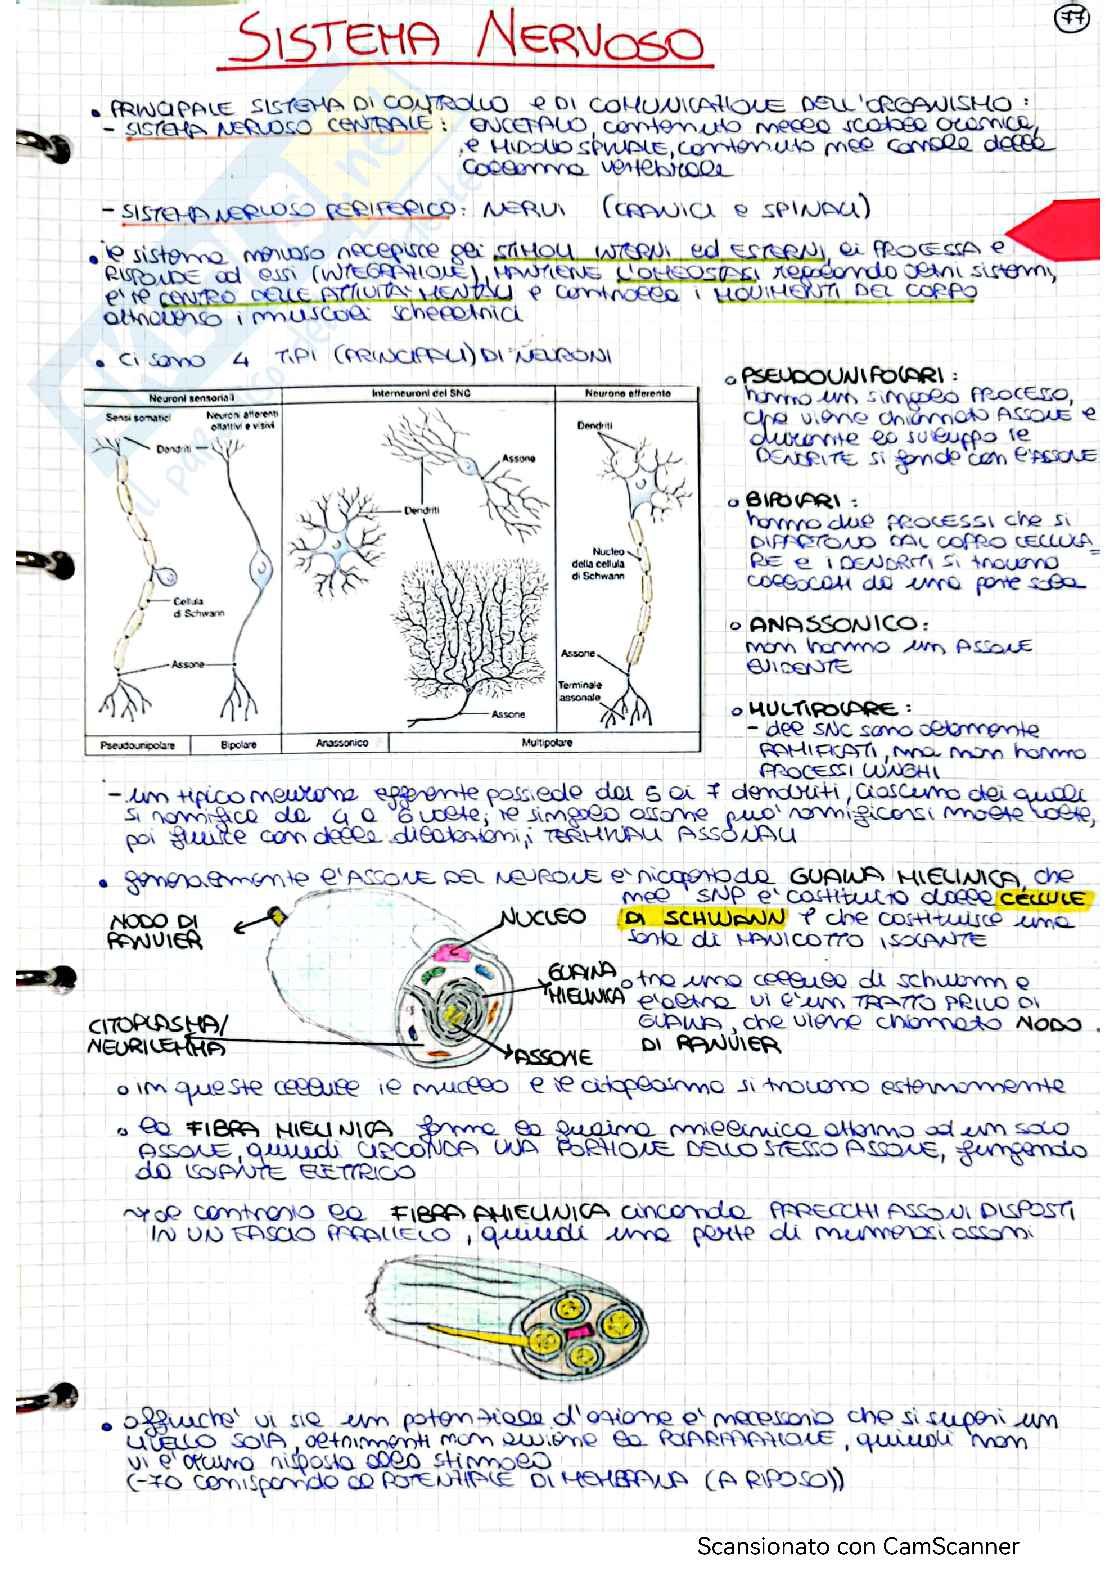 77
SISTEMA NERVOSO
• PRINCIPALE SISTEMA DI CONTROLLO e DI COMUNICAZIONE DELL'ORGANISMO:
- SISTEMA NERVOSO CENTRALE: ENCEFALO, contenuto nella scatola cranica,
e MIDOLLO SPINALE, contenuto nel canale della
colonna vertebrale
- SISTEMA NERVOSO PERIFERICO: NERVI (CRANICI e SPINALI)
• il sistema nervoso recepisce gli STIMOLI INTERNI ed ESTERNI, li PROCESSA e
RISPONDE ad essi (INTEGRAZIONE), MANTIENE L'OMEOSTASI regolando altri sistemi,
è il CENTRO DELLE ATTIVITA' MENTALI e controlla i MOVIMENTI DEL CORPO
attraverso i muscoli scheletrici
• Ci sono 4 TIPI (PRINCIPALI) DI NEURONI
Neuroni sensoriali
Interneuroni del SNC
Neurone efferente
Sensi somatici
Neuroni afferenti
olfattivi e visivi
Dendriti
Assone
Dendriti
Dendriti
Nucleo
della cellula
di Schwann
Cellula
di Schwann
Assone
Assone
Assone
Terminale
assonale
Pseudounipolare
Bipolare
Anassonico
Multipolare
o PSEUDOUNIPOLARI:
hanno un singolo PROCESSO,
che viene chiamato ASSONE e
durante lo sviluppo il
DENDRITE si fonde con l'ASSONE
o BIPOLARI:
hanno due PROCESSI che si
DIPARTONO DAL COPRO CELLULA_
RE e i DENDRITI si trovano
collocati da una parte sola
o ANASSONICO:
non hanno un ASSONE
EVIDENTE
o MULTIPOLARE:
- del SNC sono altamente
RAMIFICATI, ma non hanno
PROCESSI LUNGHI
- un tipico neurone efferente possiede dai 5 ai 7 dendriti, ciascuno dei quali
si ramifica da 4 a 6 volte; il singolo assone può ramificarsi molte volte,
poi finisce con delle dilatazioni, i TERMINALI ASSONALI
• generalmente l'ASSONE DEL NEURONE è ricoperto da GUAINA MIELINICA, che
nel SNP è costituito dalle CELLULE
DI SCHWANN e che costituisce una
sorta di MANICOTTO ISOLANTE
NODO DI
RANVIER
NUCLEO
GUAINA
MIELINICA
CITOPLASMA/
NEURILEMMA
ASSONE
o tra una cellula di schwann e
l'altra vi è un TRATTO PRIVO DI
GUAINA, che viene chiamato NODO
DI RANVIER
o in queste cellule il nucleo e il citoplasma si trovano esternamente
o la FIBRA MIELINICA forma la guaina mielinica attorno ad un solo
ASSONE, quindi CIRCONDA UNA PORZIONE DELLO STESSO ASSONE, fungendo
da ISOLANTE ELETTRICO
al contrario la FIBRA AMIELINICA circonda PARECCHI ASSONI DISPOSTI
IN UN FASCIO PARALLELO, quindi una parte di numerosi assoni
• affinché vi sia un potenziale d'azione è necessario che si superi un
LIVELLO SOIA, altrimenti non avviene la POLARIZZAZIONE, quindi non
vi è alcuna risposta allo stimolo
(-70 corrisponde al POTENZIALE DI MEMBRANA (A RIPOSO))
Scansionato con CamScanner